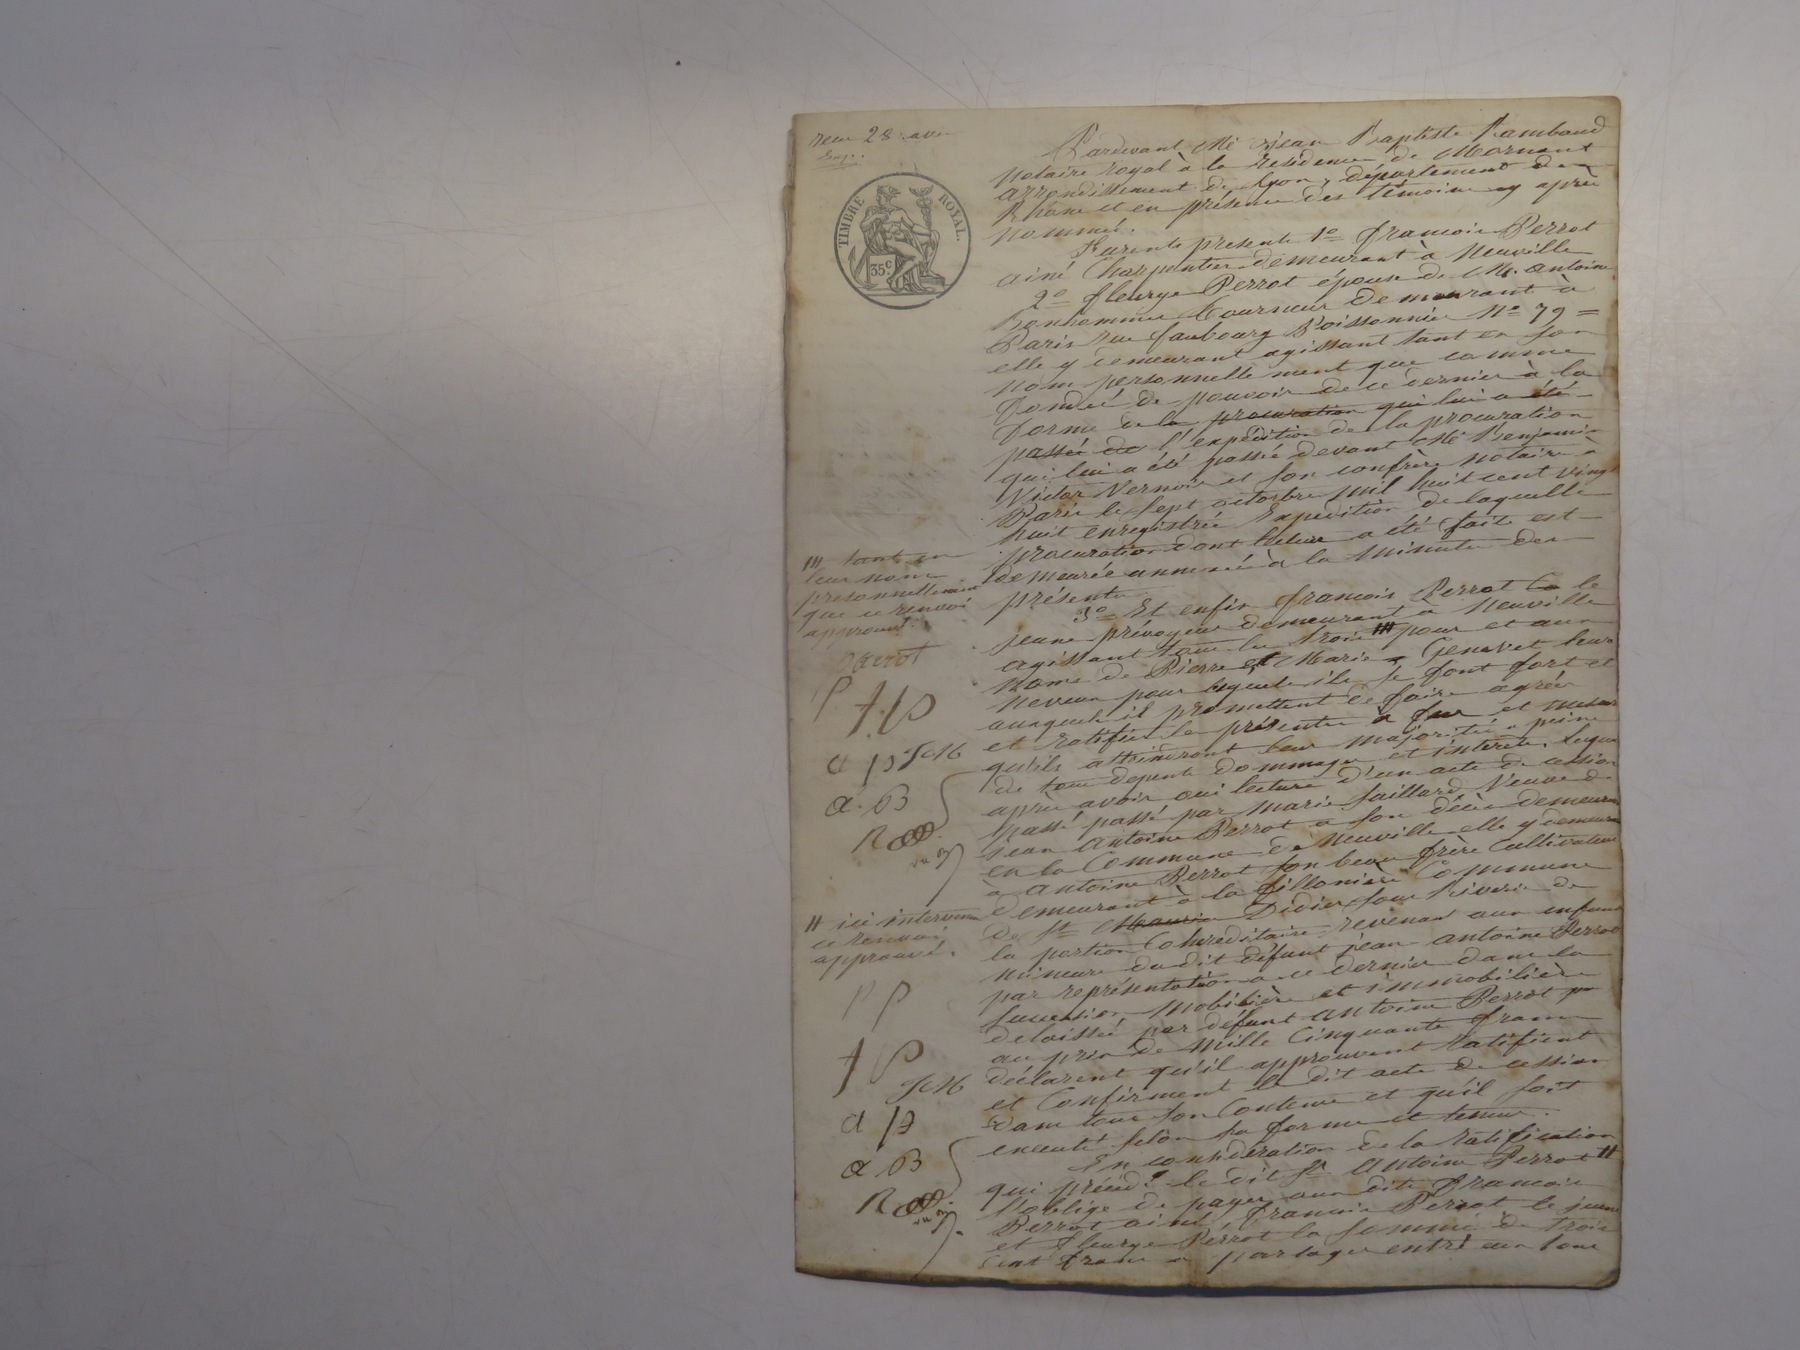 reçu 28
Exp.
TIMBRE ROYAL.
35c
Pardevant Me Jean Baptiste Rambaud
notaire royal à la résidence de Mornant
arrondissement de Lyon, département du
Rhône et en présence des témoins cy après
nommés.
Furent présents 1o francois Perrot
ainé Charpentier demeurant à Neuville
2o fleurye Perrot épouse de M. antoine
Bonhomme Tourneur demeurant à
Paris rue faubourg Poissonnier No 79 =
elle y demeurant agissant tant en son
nom personnelle ment que comme
fondée de pouvoir de ce dernier à la
forme de la procuration qui lui a été
passée de l'expédition de la procuration
qui lui a été passée devant Me Benjamin
Victor Vernois et son confrère notaire à
Paris le sept octobre mil huit cent vingt
huit enregistrée Expedition de laquelle
procuration dont lecture a été faite est
demeurée annexée à la minute des
présentes
3o Et enfin francois Perrot le
jeune prévoyeur demeurant à Neuville
agissant tous les trois /// pour et aux
noms de Pierre et Marie Genevet leurs
neveux pour lesquels ils se font fort et
auxquels il promettent de faire agréer
et ratifier le présenter à fur et mesure
qu'ils atteindront leur majorité à peine
de tous depents dommages et intérêts. Lesquels
après avoir oui lecture d'un acte de cession
passé passé par Marie Saillard Veuve de
jean Antoine Perrot a son décès demeurant
en la Commune de Neuville elle y demeurant
à Antoine Perrot son beau frère Cultivateur
demeurant à la fillonière Commune
de St Maurice Didier sous Riverie de
la portion Cohereditaire revenant aux enfans
mineurs du dit défunt jean antoine Perrot
par représentation a ce dernier dans la
succession mobilière et immobilière
delaissée par défunt antoine Perrot
au prix de mille Cinquante francs
déclarent qu'il approuvent ratifient
et Confirment le dit acte de cession
dans tout son Contenu et qu'il soit
executé selon sa forme et teneur.
En considération de la ratification
qui précéde le dit Sr Antoine Perrot //
s'oblige de payer aux dits francois
Perrot ainé, francois Perrot le jeune
et fleurye Perrot la somme de trois
cent francs a partager entre eux tous
/// tant en
leur noms
personnellement
que ce renvoi
approuvé.
perrot
P
f. p
a p JCM
a. B
R
// ici intervenu
ce renvoi
approuvé.
P P
f P
JCM
a p
a B
R